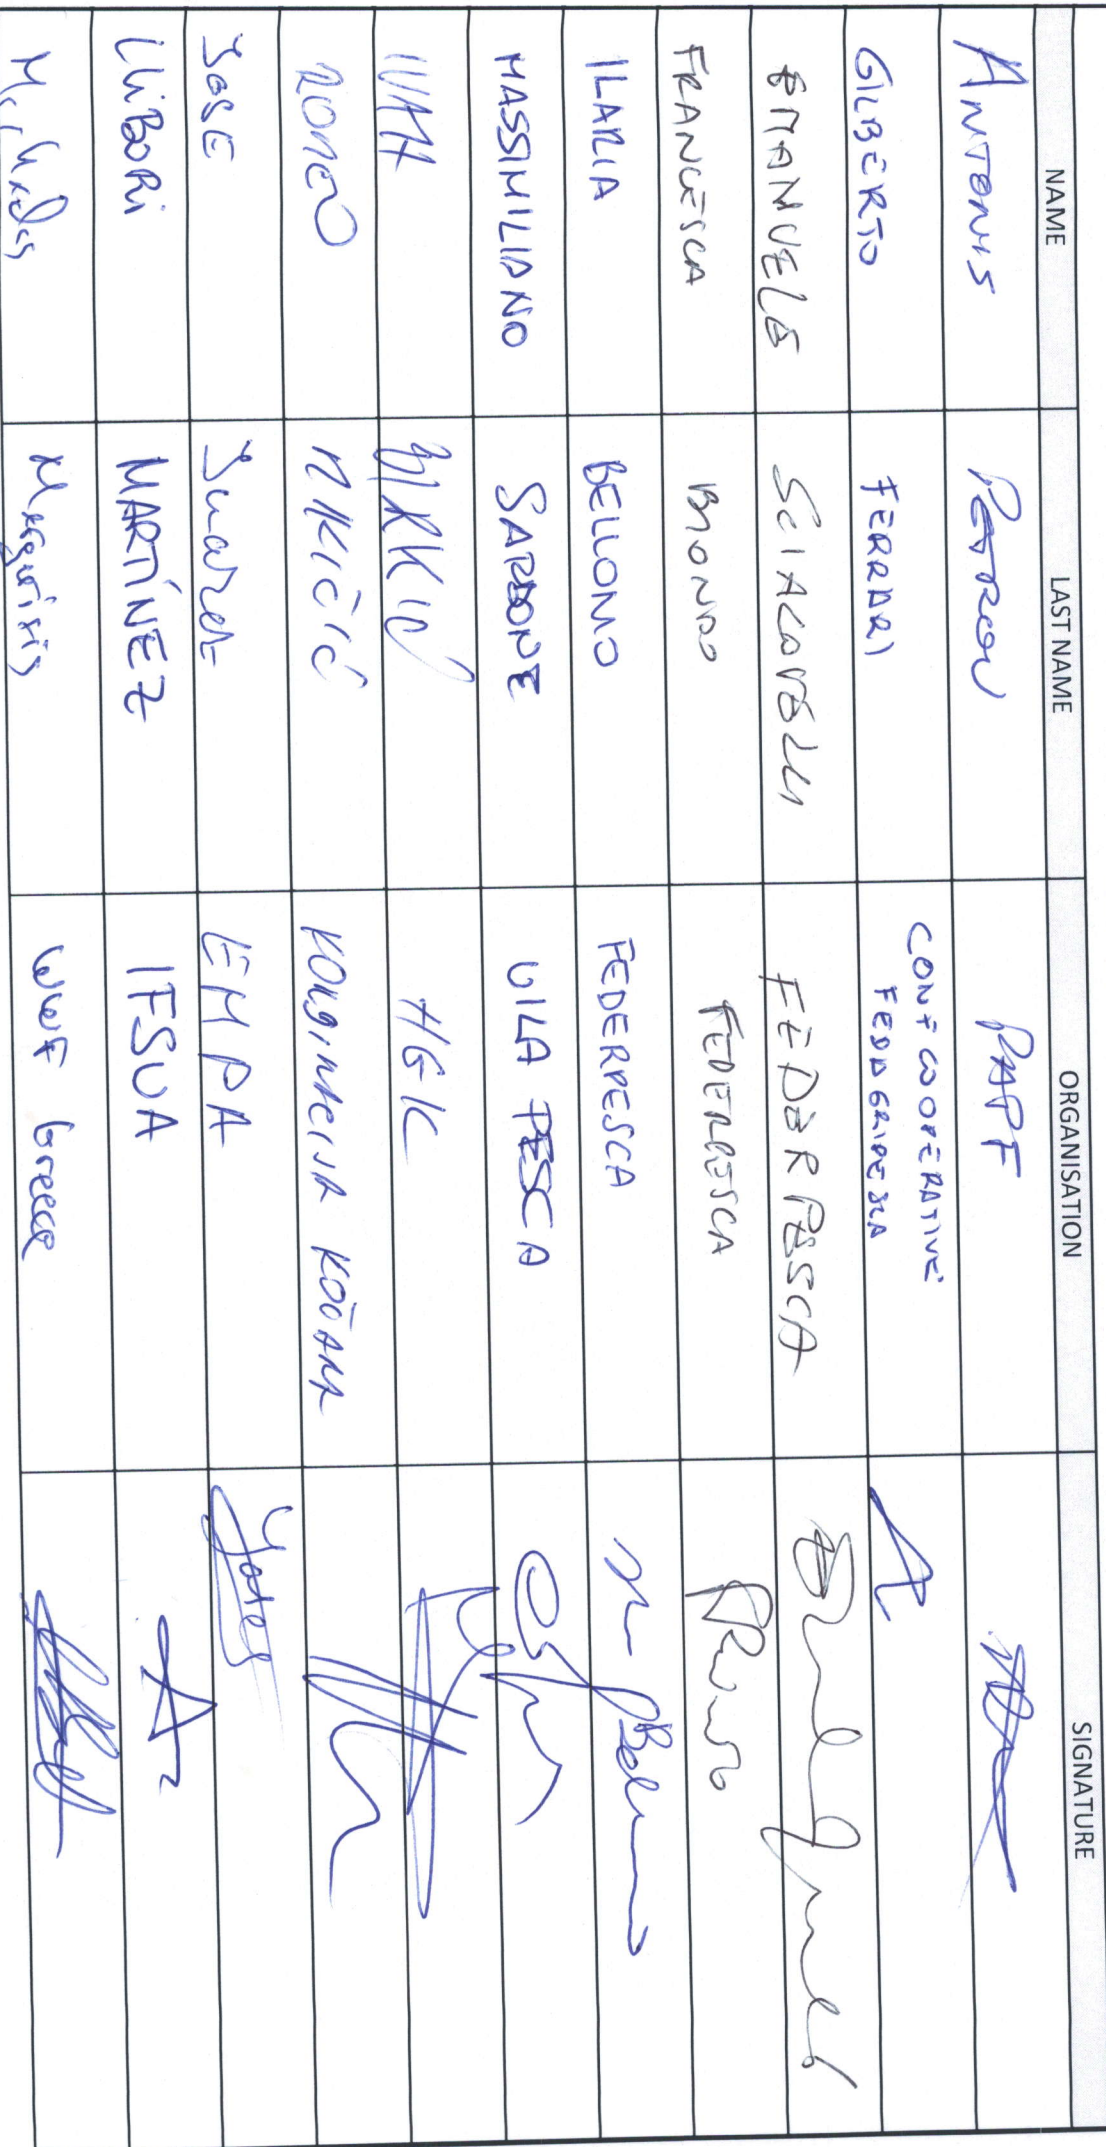 NAME LAST NAME ORGANISATION SIGNATURE
ANTONIS PETROU PAPF
GILBERTO FERRARI CONFCOOPERATIVE
FEDAGRIPESCA
EMANUELE SCIACOVELLI FEDERPESCA
FRANCESCA BIONDO FEDERPESCA
ILARIA BELLOMO FEDERPESCA
MASSIMILIANO SARDONE UILA PESCA
IVAN BIRKIĆ HGK
ROMEO MIKIČIĆ KOČARA
JOSE Suarez EMPA
LLIBORI MARTÍNEZ IFSUA
Margaritis WWF Greece